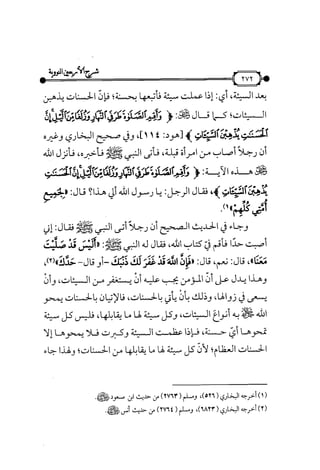 شرح الأربعين النووية
٢٧٢
بعد السيئة، أي: إذا عملت سيئة فأتبعها بحسنة؛ فإنّ الحسنات يذهبن
السيئات؛ كما قال ﷺ: ﴿وَأَقِمِ ٱلصَّلَوٰةَ طَرَفَيِ ٱلنَّهَارِ وَزُلَفًا مِّنَ ٱلَّيْلِ إِنَّ
ٱلْحَسَنَٰتِ يُذْهِبْنَ ٱلسَّيِّـَٔاتِ﴾ [هود: ١١٤]، وفي صحيح البخاري وغيره
أن رجلاً أصاب من امرأة قبلة، فأتى النبي ﷺ فأخبره، فأنزل الله
هذه الآية: ﴿وَأَقِمِ ٱلصَّلَوٰةَ طَرَفَيِ ٱلنَّهَارِ وَزُلَفًا مِّنَ ٱلَّيْلِ إِنَّ ٱلْحَسَنَٰتِ
يُذْهِبْنَ ٱلسَّيِّـَٔاتِ﴾، فقال الرجل: يا رسول الله ألي هذا؟ قال: «لِجَمِيعِ
أُمَّتِي كُلِّهِمْ»(١).
وجاء في الحديث الصحيح أن رجلاً أتى النبي ﷺ فقال: إني
أصبت حدًّا فأقم فيَّ كتاب الله، فقال له النبي ﷺ: «أَلَيْسَ قَدْ صَلَّيْتَ
مَعَنَا»، قال: نعم، قال: «فَإِنَّ اللهَ قَدْ غَفَرَ لَكَ ذَنْبَكَ -أو قال- حَدَّكَ»(٢)،
وهذا يدل على أنّ المؤمن يجب عليه أن يستغفر من السيئات، وأنْ
يسعى في زوالها، وذلك بأن يأتي بالحسنات، فالإتيان بالحسنات يمحو
الله ﷻ به أنواع السيئات، وكل سيئة لها ما يقابلها، فليس كل سيئة
تمحوها أيّ حسنة، فإذا عظمت السيئة وكبرت فلا يمحوها إلا
الحسنات العظام؛ لأنّ كل سيئة لها ما يقابلها من الحسنات؛ ولهذا جاء
(١) أخرجه البخاري (٥٢٦)، ومسلم (٢٧٦٣) من حديث ابن مسعود ﷺ.
(٢) أخرجه البخاري (٦٨٢٣)، ومسلم (٢٧٦٤) من حديث أنس ﷺ.